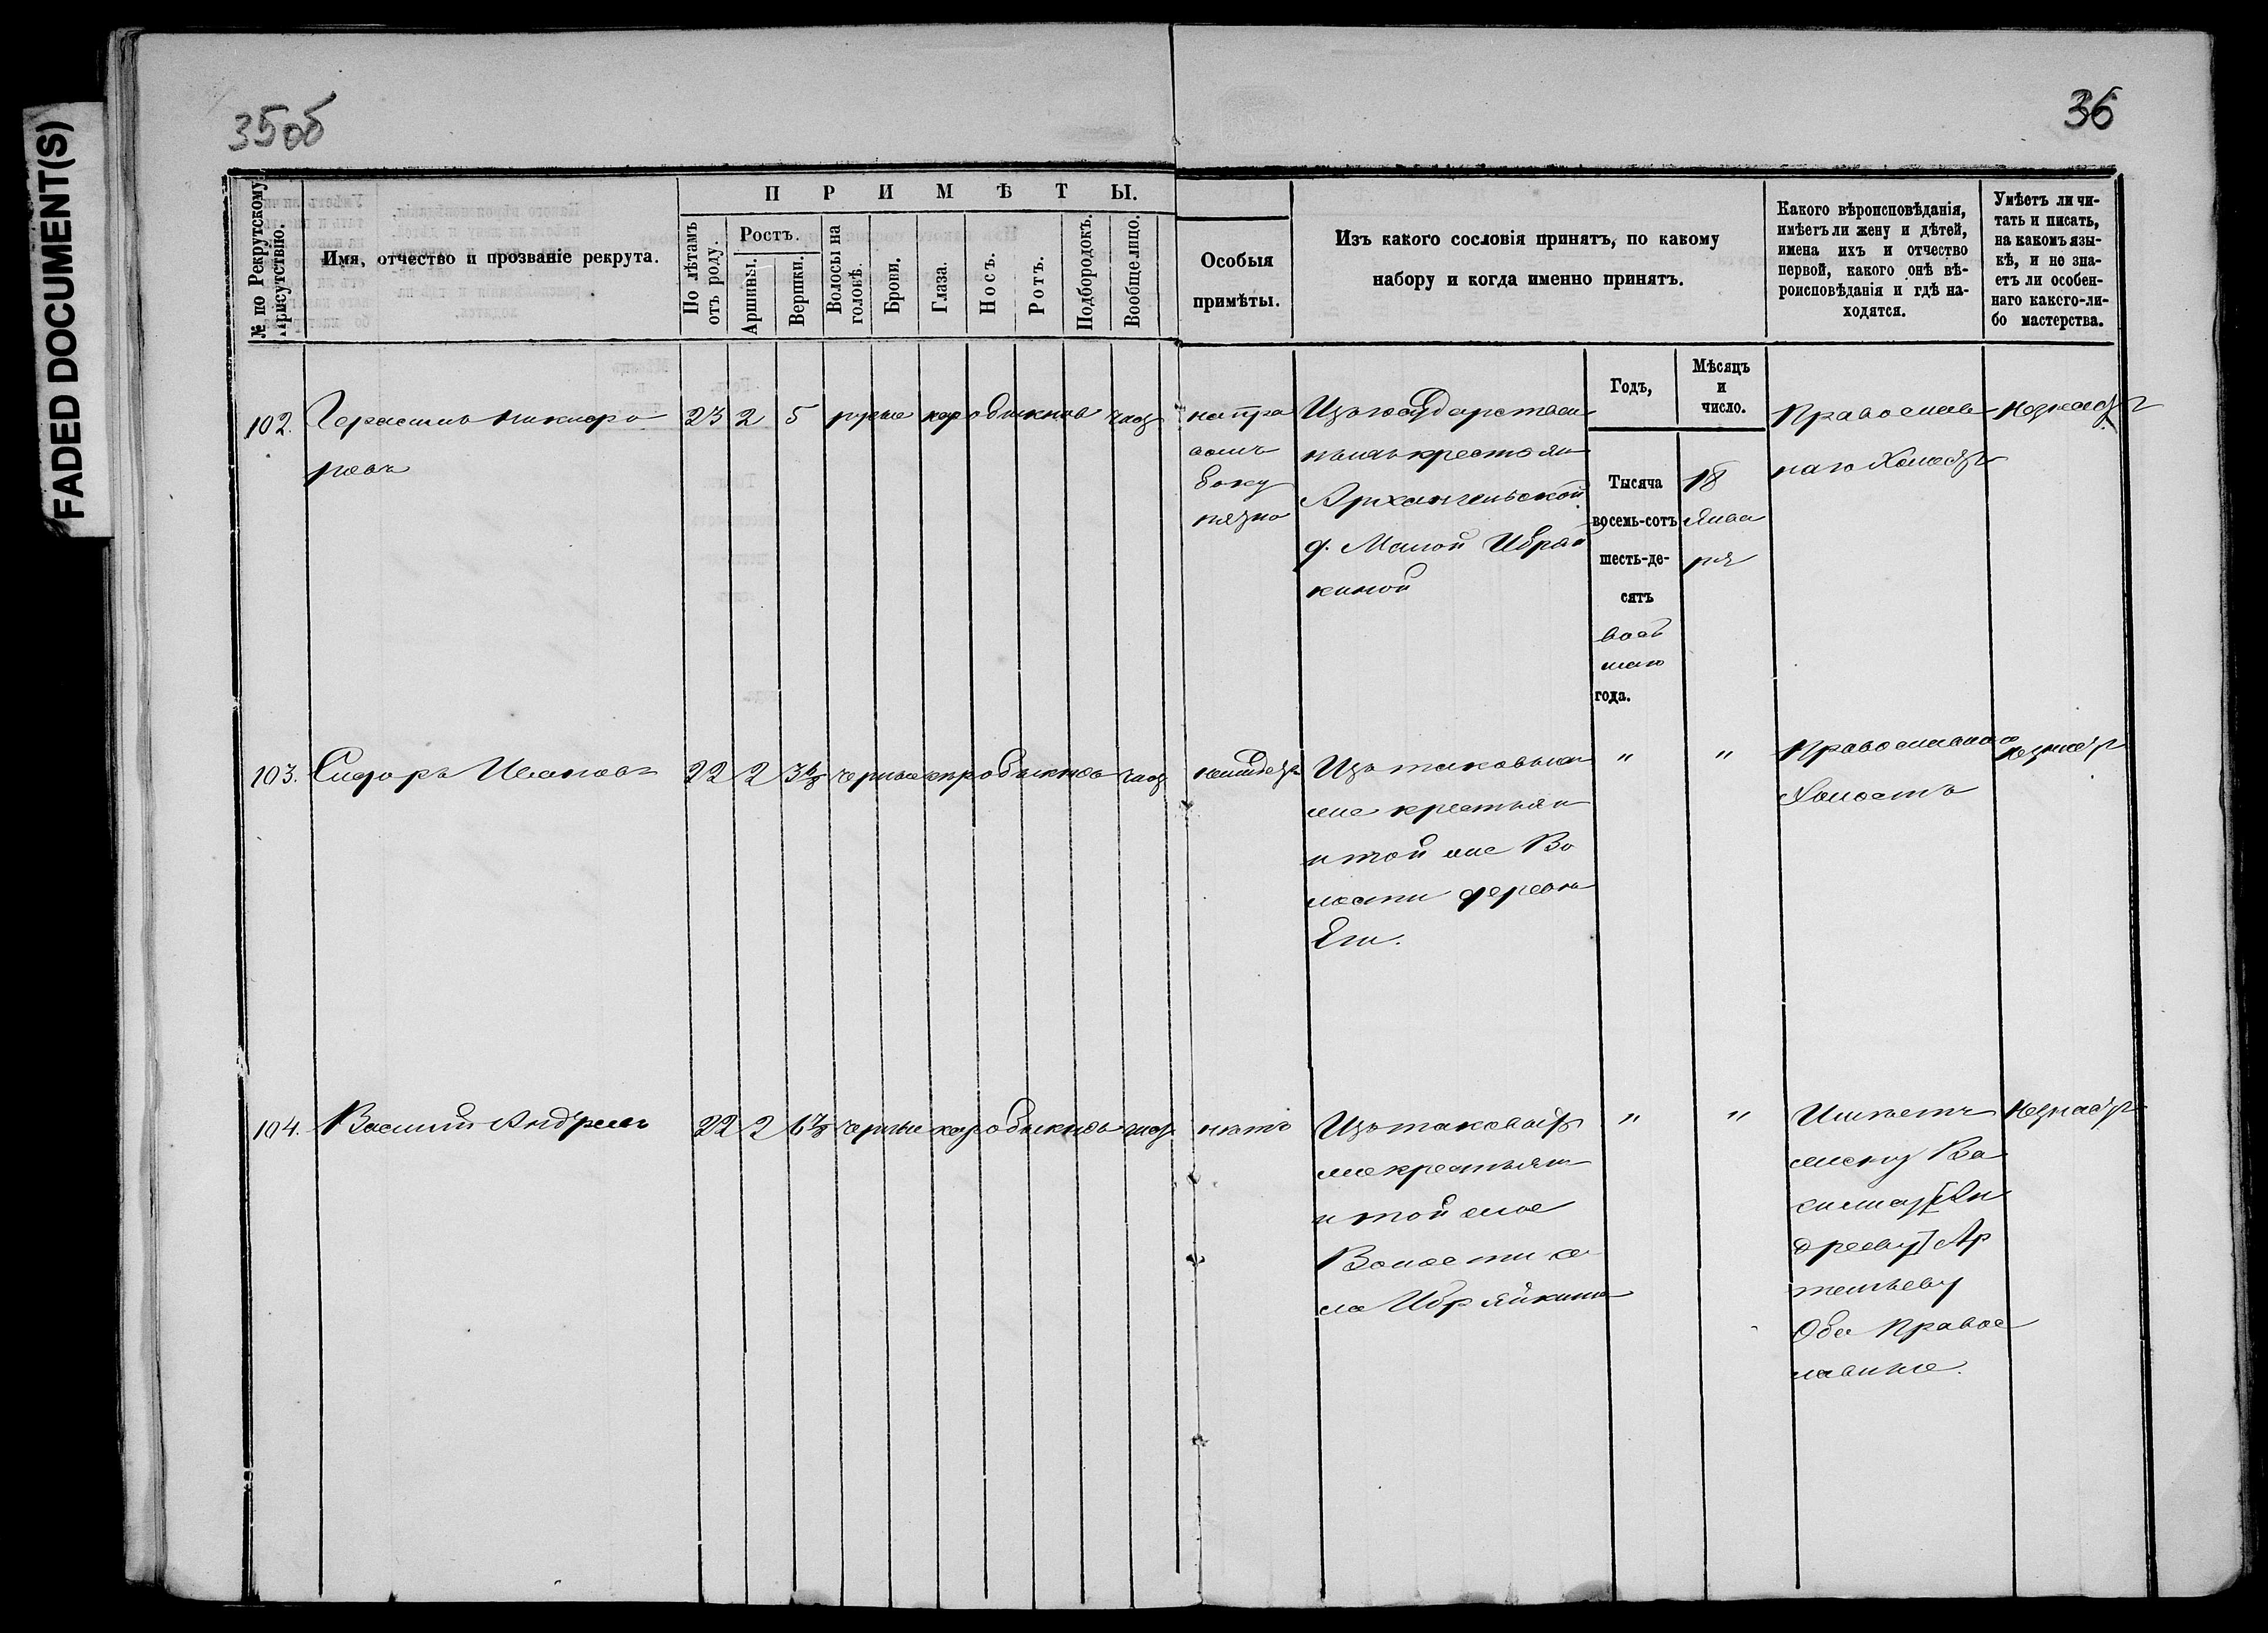 FADED DOCUMENT(S)
35об
36
№ по Рекрутскому Присутствію.
Имя, отчество и прозваніе рекрута.
ПРИМѢТЫ.
По лѣтамъ отъ роду.
Ростъ.
Аршины.
Вершки.
Волосы на головѣ.
Брови.
Глаза.
Носъ.
Ротъ.
Подбородокъ.
Вообще лицо.
Особыя
примѣты.
Изъ какого сословія принятъ, по какому
набору и когда именно принятъ.
Какого вѣроисповѣданія,
имѣетъ ли жену и дѣтей,
имена ихъ и отчество
первой, какого онѣ вѣ-
роисповѣданія и гдѣ на-
ходятся.
Умѣетъ ли чи-
тать и писать,
на какомъ язы-
кѣ, и не зна-
етъ ли особен-
наго какого-ли-
бо мастерства.
Годъ,
Мѣсяцъ
и
число.
102. Герасимъ Никифо
ровъ
23 2 5 русые кар обыкнов чист
на пра
вомъ
боку
пятно
Изъ государствен
ныхъ крестьян
Архангельской
д. Малой Ибрай
киной
Тысяча
восемь-сотъ
шесть-де-
сятъ
вось
маго
года.
18
Янва
ря
Православ
наго Холостъ
Незнаетъ
103. Сидоръ Ивановъ
22 2 3 черные кар обыкнов чист
Изъ таковыхъ
же крестьян
и той же Во
лости деревни
" "
Православнаго
Холостъ
Незнаетъ
104. Василий Андреевъ
22 2 6⅞ черные кар обыкнов чист
нѣтъ
Изъ таковыхъ
же крестьян
и той же
Волости се
ла Ибряйкина
" "
Имѣетъ
жену Ва
[Ан
дрееву] Ар
темьеву
Оба Правос
лавные.
Незнаетъ